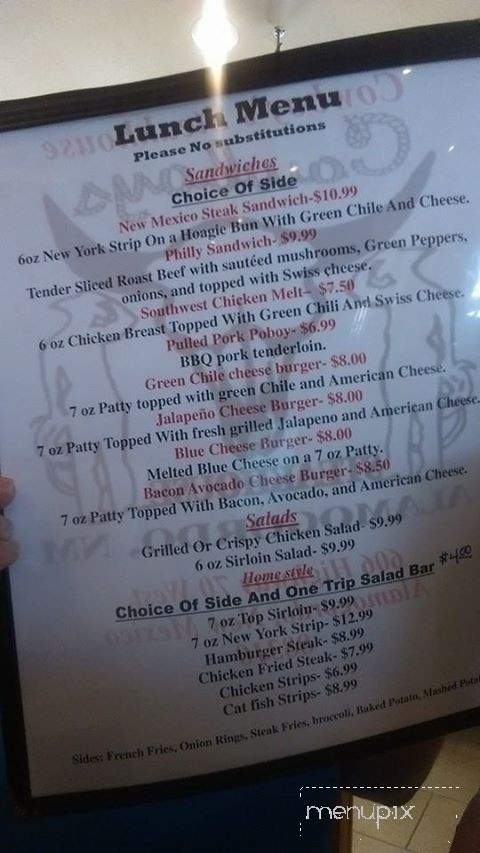 Lunch Menu
Please No substitutions
Sandwiches
Choice Of Side
New Mexico Steak Sandwich-$10.99
6oz New York Strip On a Hoagie Bun With Green Chile And Cheese.
Philly Sandwich- $9.99
Tender Sliced Roast Beef with sautéed mushrooms, Green Peppers,
onions, and topped with Swiss cheese.
Southwest Chicken Melt– $7.50
6 oz Chicken Breast Topped With Green Chili And Swiss Cheese.
Pulled Pork Poboy- $6.99
BBQ pork tenderloin.
Green Chile cheese burger- $8.00
7 oz Patty topped with green Chile and American Cheese.
Jalapeño Cheese Burger- $8.00
7 oz Patty Topped With fresh grilled Jalapeno and American Cheese.
Blue Cheese Burger- $8.00
Melted Blue Cheese on a 7 oz Patty.
Bacon Avocado Cheese Burger- $8.50
7 oz Patty Topped With Bacon, Avocado, and American Cheese.
Salads
Grilled Or Crispy Chicken Salad- $9.99
6 oz Sirloin Salad- $9.99
Home style
Choice Of Side And One Trip Salad Bar $4.00
7 oz Top Sirloin- $9.99
7 oz New York Strip- $12.99
Hamburger Steak- $8.99
Chicken Fried Steak- $7.99
Chicken Strips- $6.99
Cat fish Strips- $8.99
Sides: French Fries, Onion Rings, Steak Fries, broccoli, Baked Potato, Mashed Potat
menupix